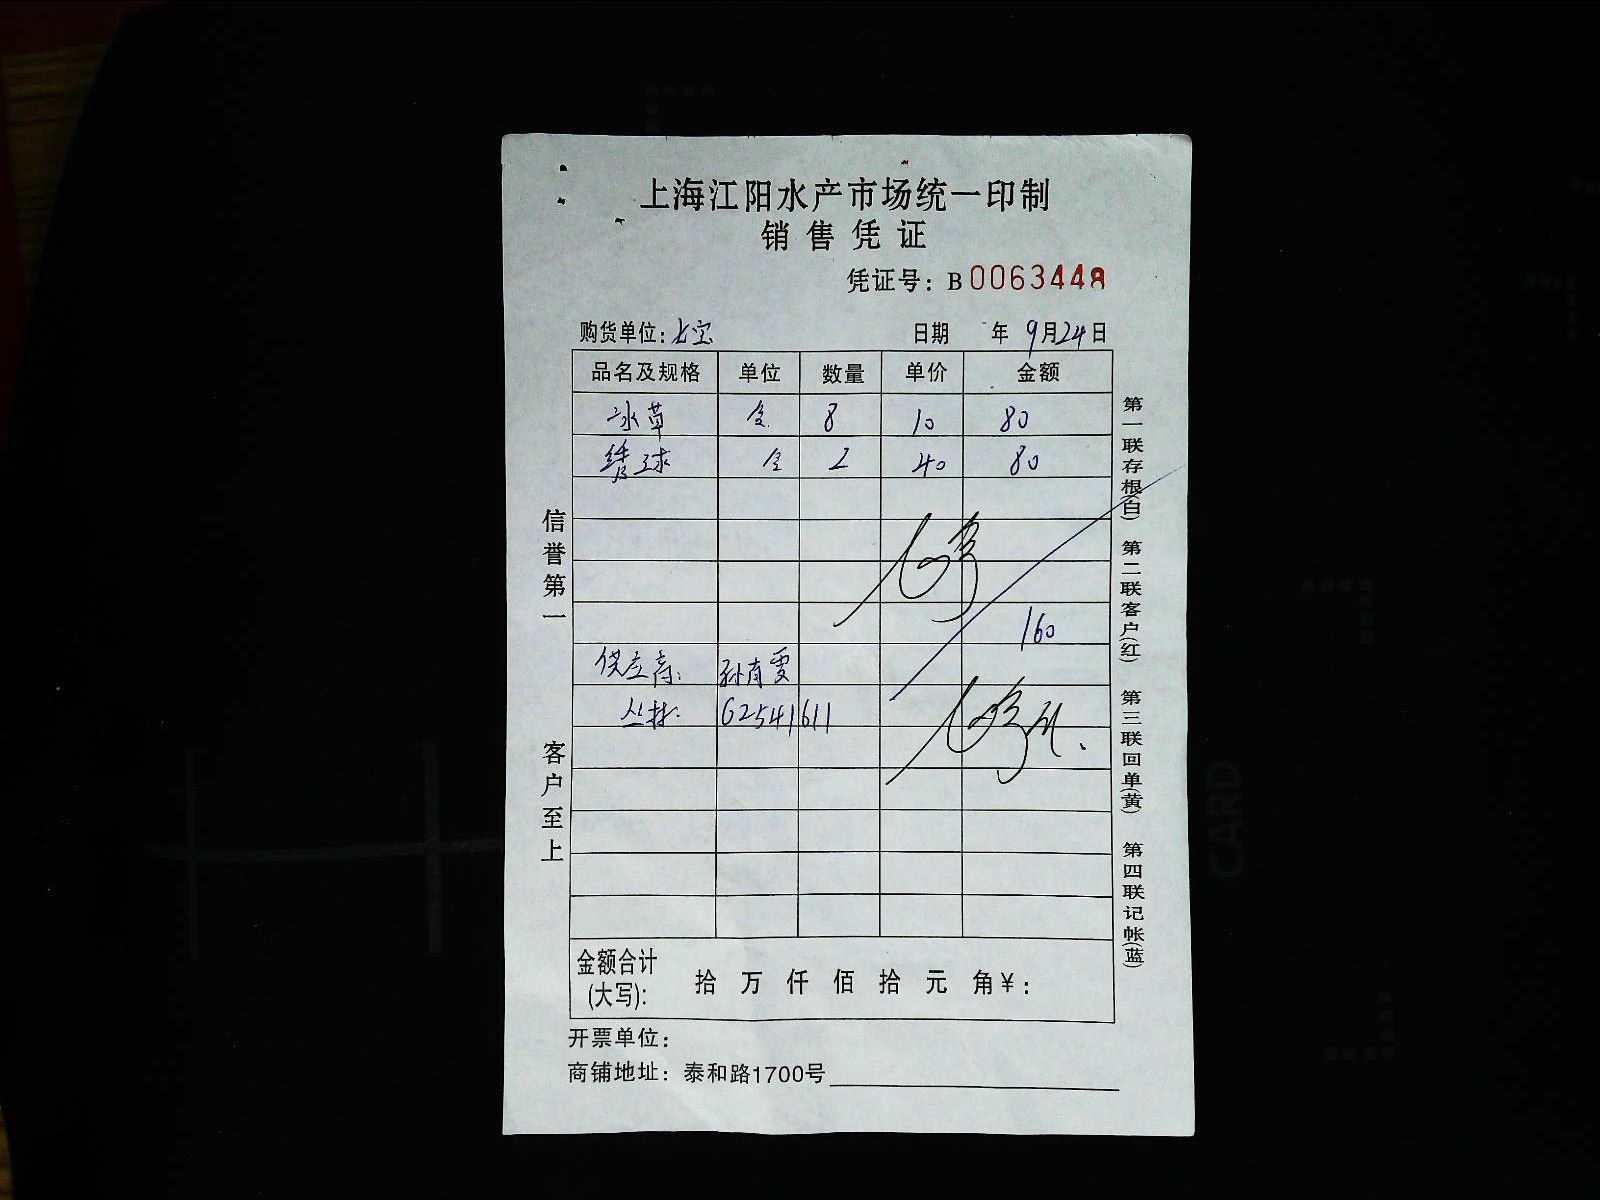 上海江阳水产市场统一印制
销售凭证
凭证号：B0063448
购货单位：七宝 日期 年 9月24日
品名及规格 单位 数量 单价 金额
水草 8 10 80
绣球 2 40 80
160
供应商： 孙有雯
丛林 62541611
金额合计(大写): 拾 万 仟 佰 拾 元 角 ¥：
开票单位：
商铺地址：泰和路1700号
信誉第一
客户至上
第一联存根(白) 第二联客户(红) 第三联回单(黄) 第四联记帐(蓝)
CARD